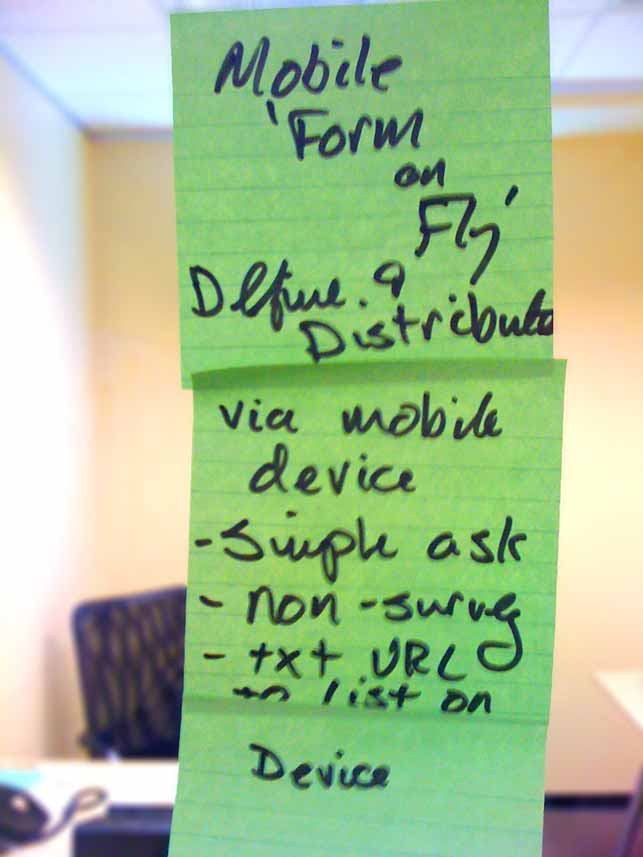 Mobile
'Form
on
Fly'
Define. &
Distribute
via mobile
device
- Simple ask
- non-survey
- txt URL
to list on
Device